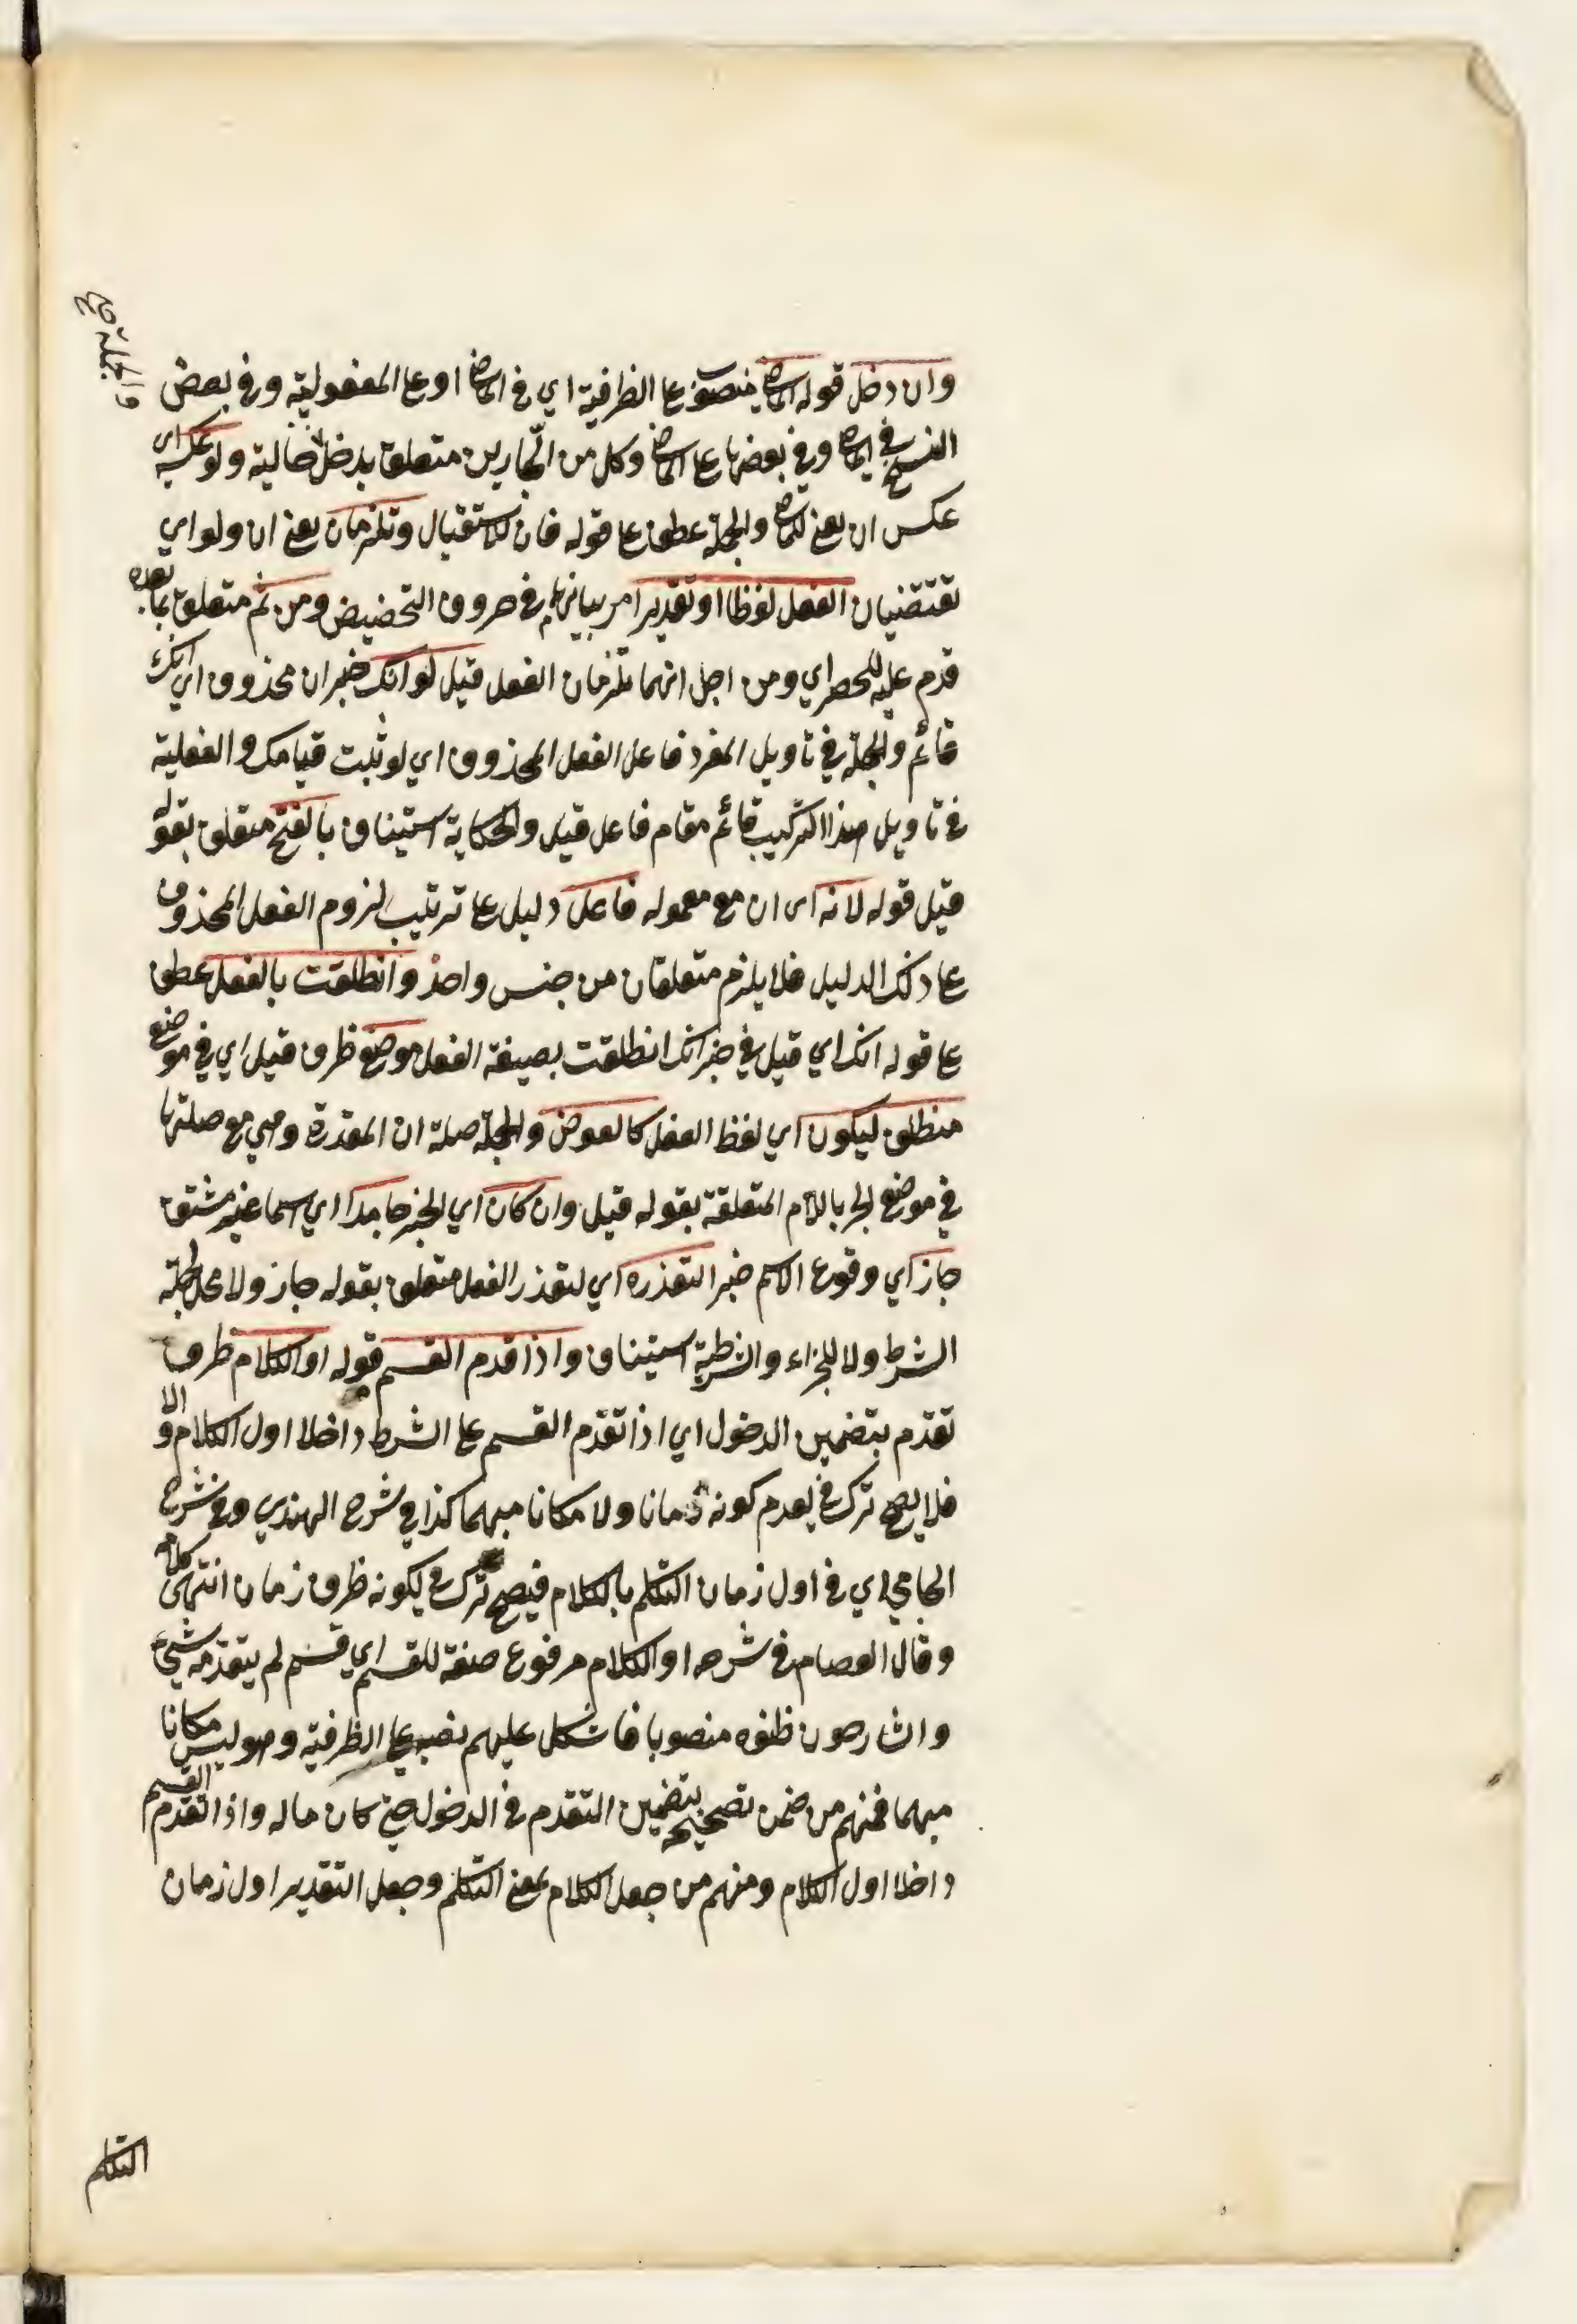 والجملة صح
وان دخل قوله الماضي منصوب على الظرفية اي في الماضي او على المفعولية وفي بعض
النسخ في الماضي وفي بعضها على الماضي وكل من الجارين متعلق بدخل حالية ولو عكسه اي
عكس ان يعني للماضي والجملة عطف على قوله فان للاستقبال وتلزمان يعني ان ولو اي
تقتضيان الفعل لفظا او تقديرا مر بيانهما في حروف التحضيض ومن ثم متعلق بما بعده
قدم عليه للحصر اي ومن اجل انهما تلزمان الفعل قيل لو انك خبر ان محذوف اي انك
قائم والجملة في تاويل المفرد فاعل الفعل المحذوف اي لو ثبت قيامك والفعلية
في تاويل هذا التركيب قائم مقام فاعل قيل والحكاية استيناف بالفتح متعلق بقوله
قيل قوله لانه اى ان مع معموله فاعل دليل على ترتيب لزوم الفعل المحذوف
على ذلك الدليل فلا يلزم متعلقان من جنس واحد وانطلقت بالفعل عطف
على قوله انك اي قيل في خبر انك انطلقت بصيغة الفعل موضع ظرف قيل اي في موضع
منطلق ليكون اي لفظ الفعل كالعوض والجملة صلة ان المقدرة وهي مع صلتها
في موضع الجر باللام المتعلقة بقوله قيل وان كان اي الخبر جامدا اي اسما غير مشتق
جاز اي وقوع الاسم خبرا لتعذره اي لتعذر الفعل متعلق بقوله جاز ولا محل لجملة
الشرط ولا للجزاء والشرطية استيناف واذا قدم القسم قوله اول الكلام ظرف
تقدم بتضمين الدخول اي اذا تقدم القسم على الشرط داخلا اول الكلام والا
فلا يصح ترك في لعدم كونه زمانا ولا مكانا مبهما كذا في شرح الهندي وفي شرح
الجامي اي في اول زمان التكلم بالكلام فيصح ترك في لكونه ظرف زمان انتهى كلامه
وقال العصام في شرحه اول الكلام مرفوع صفة للقسم اي قسم لم يتقدمه شيء
والشارحون ظنوه منصوبا فاشكل عليهم نصبه على الظرفية وهو ليس مكانا
مبهما فمنهم من ضمن تصحيحه بتضمين التقدم في الدخول حتى كان ماله واذا تقدم القسم
داخلا اول الكلام ومنهم من جعل الكلام بمعنى التكلم وجعل التقدير اول زمان
التكلم